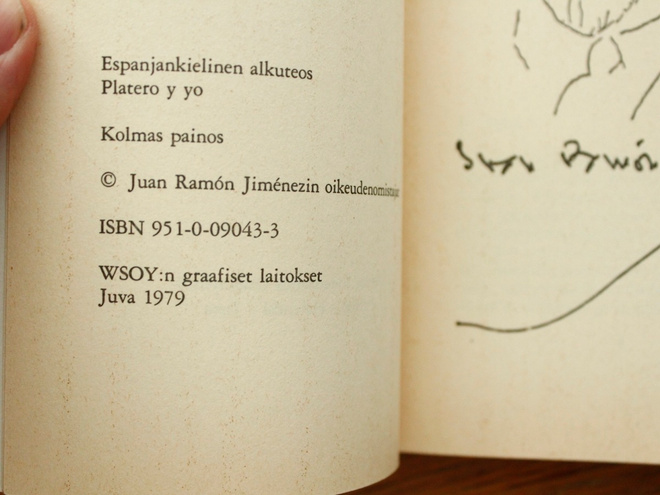 Espanjankielinen alkuteos
Platero y yo
Kolmas painos
© Juan Ramón Jiménezin oikeudenomistajat
ISBN 951-0-09043-3
WSOY:n graafiset laitokset
Juva 1979
Juan Ramón